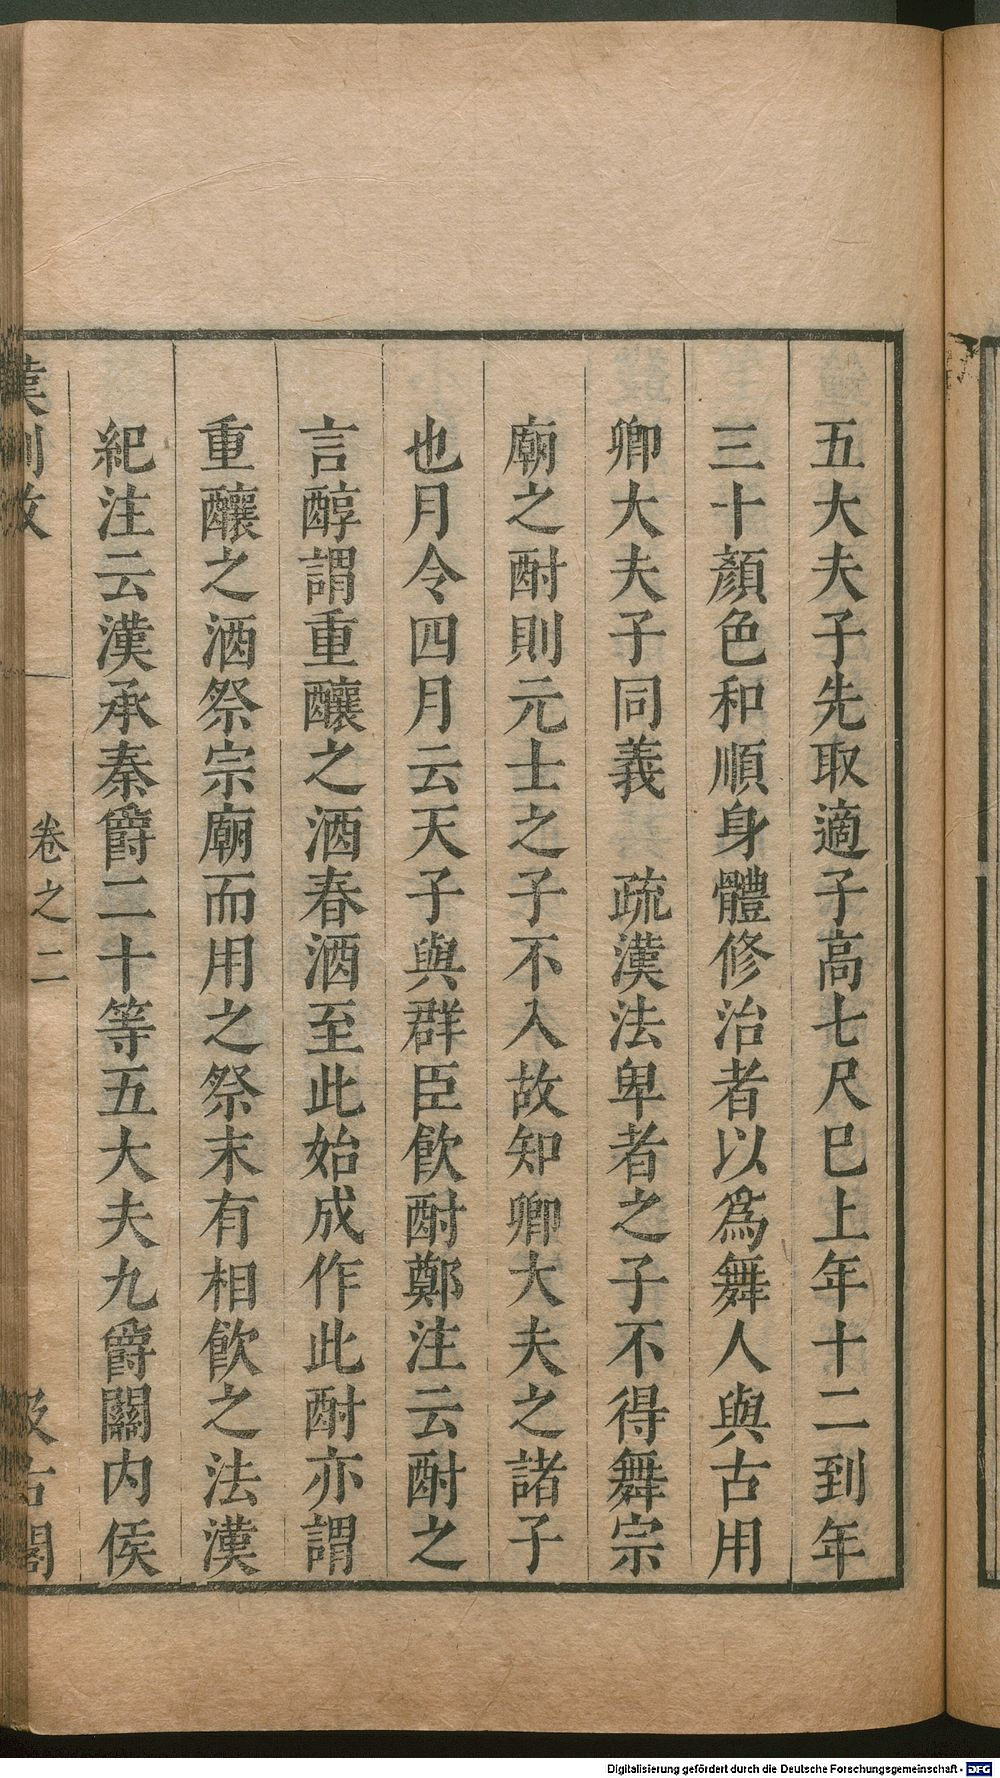 五大夫子先取適子高七尺巳上年十二到年
三十顏色和順身體修治者以爲舞人與古用
卿大夫子同義　疏漢法卑者之子不得舞宗
廟之酎則元士之子不入故知卿大夫之諸子
也月令四月云天子與群臣飲酎鄭注云酎之
言醇謂重釀之酒春酒至此始成作此酎亦謂
重釀之酒祭宗廟而用之祭末有相飲之法漢
紀注云漢承秦爵二十等五大夫九爵關内侯
漢制攷
卷之二
汲古閣
Digitalisierung gefördert durch die Deutsche Forschungsgemeinschaft - DFG